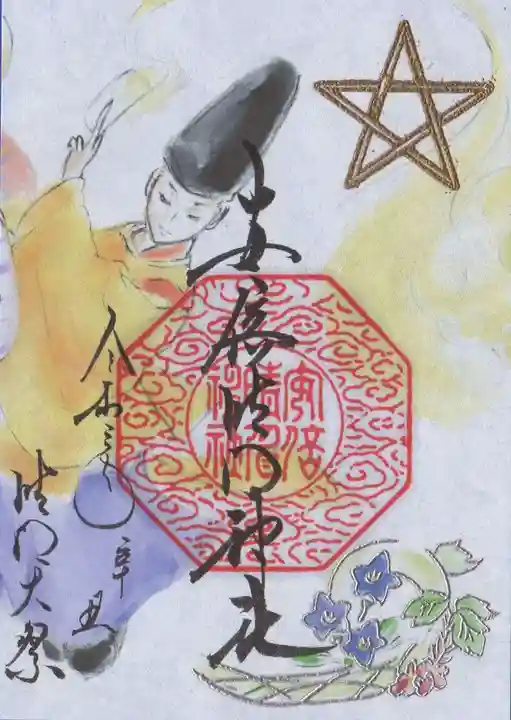 安倍晴明神社
安倍
晴明
神社
令和三年辛丑
晴明大祭